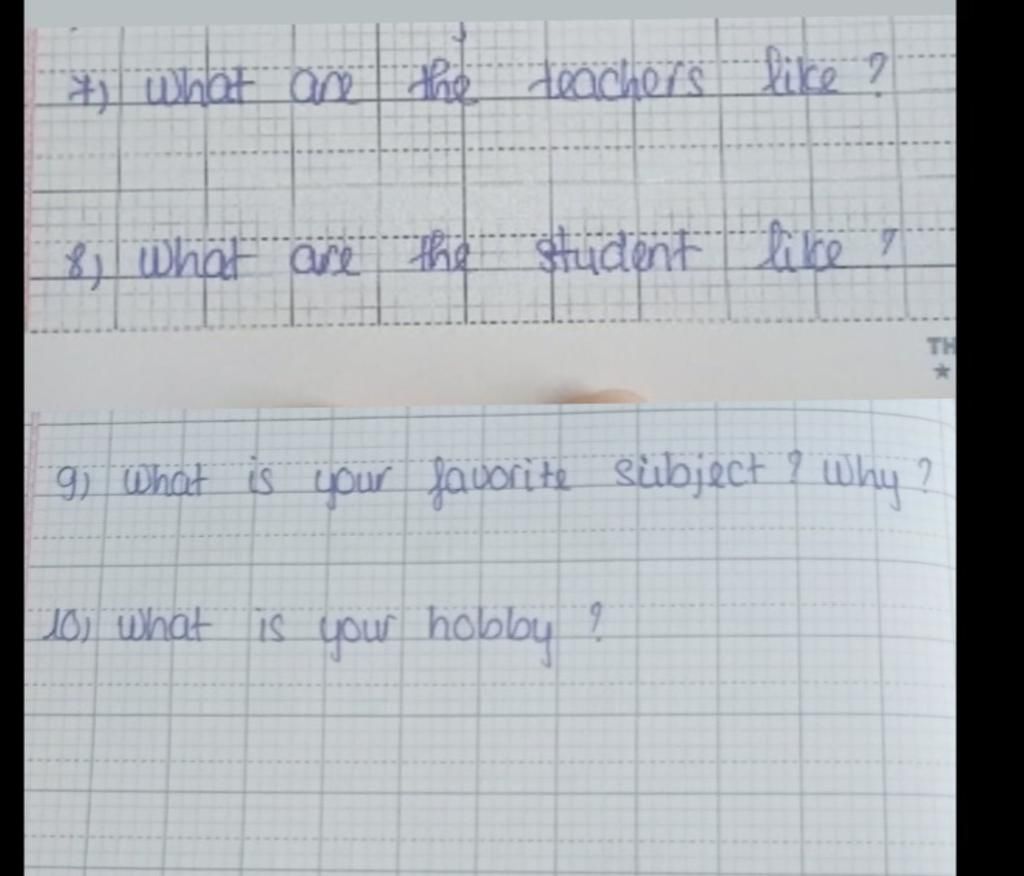 7) What are the teachers like ?
8) What are the student like ?
TH
9) What is your favorite subject ? Why ?
10) What is your hobby ?